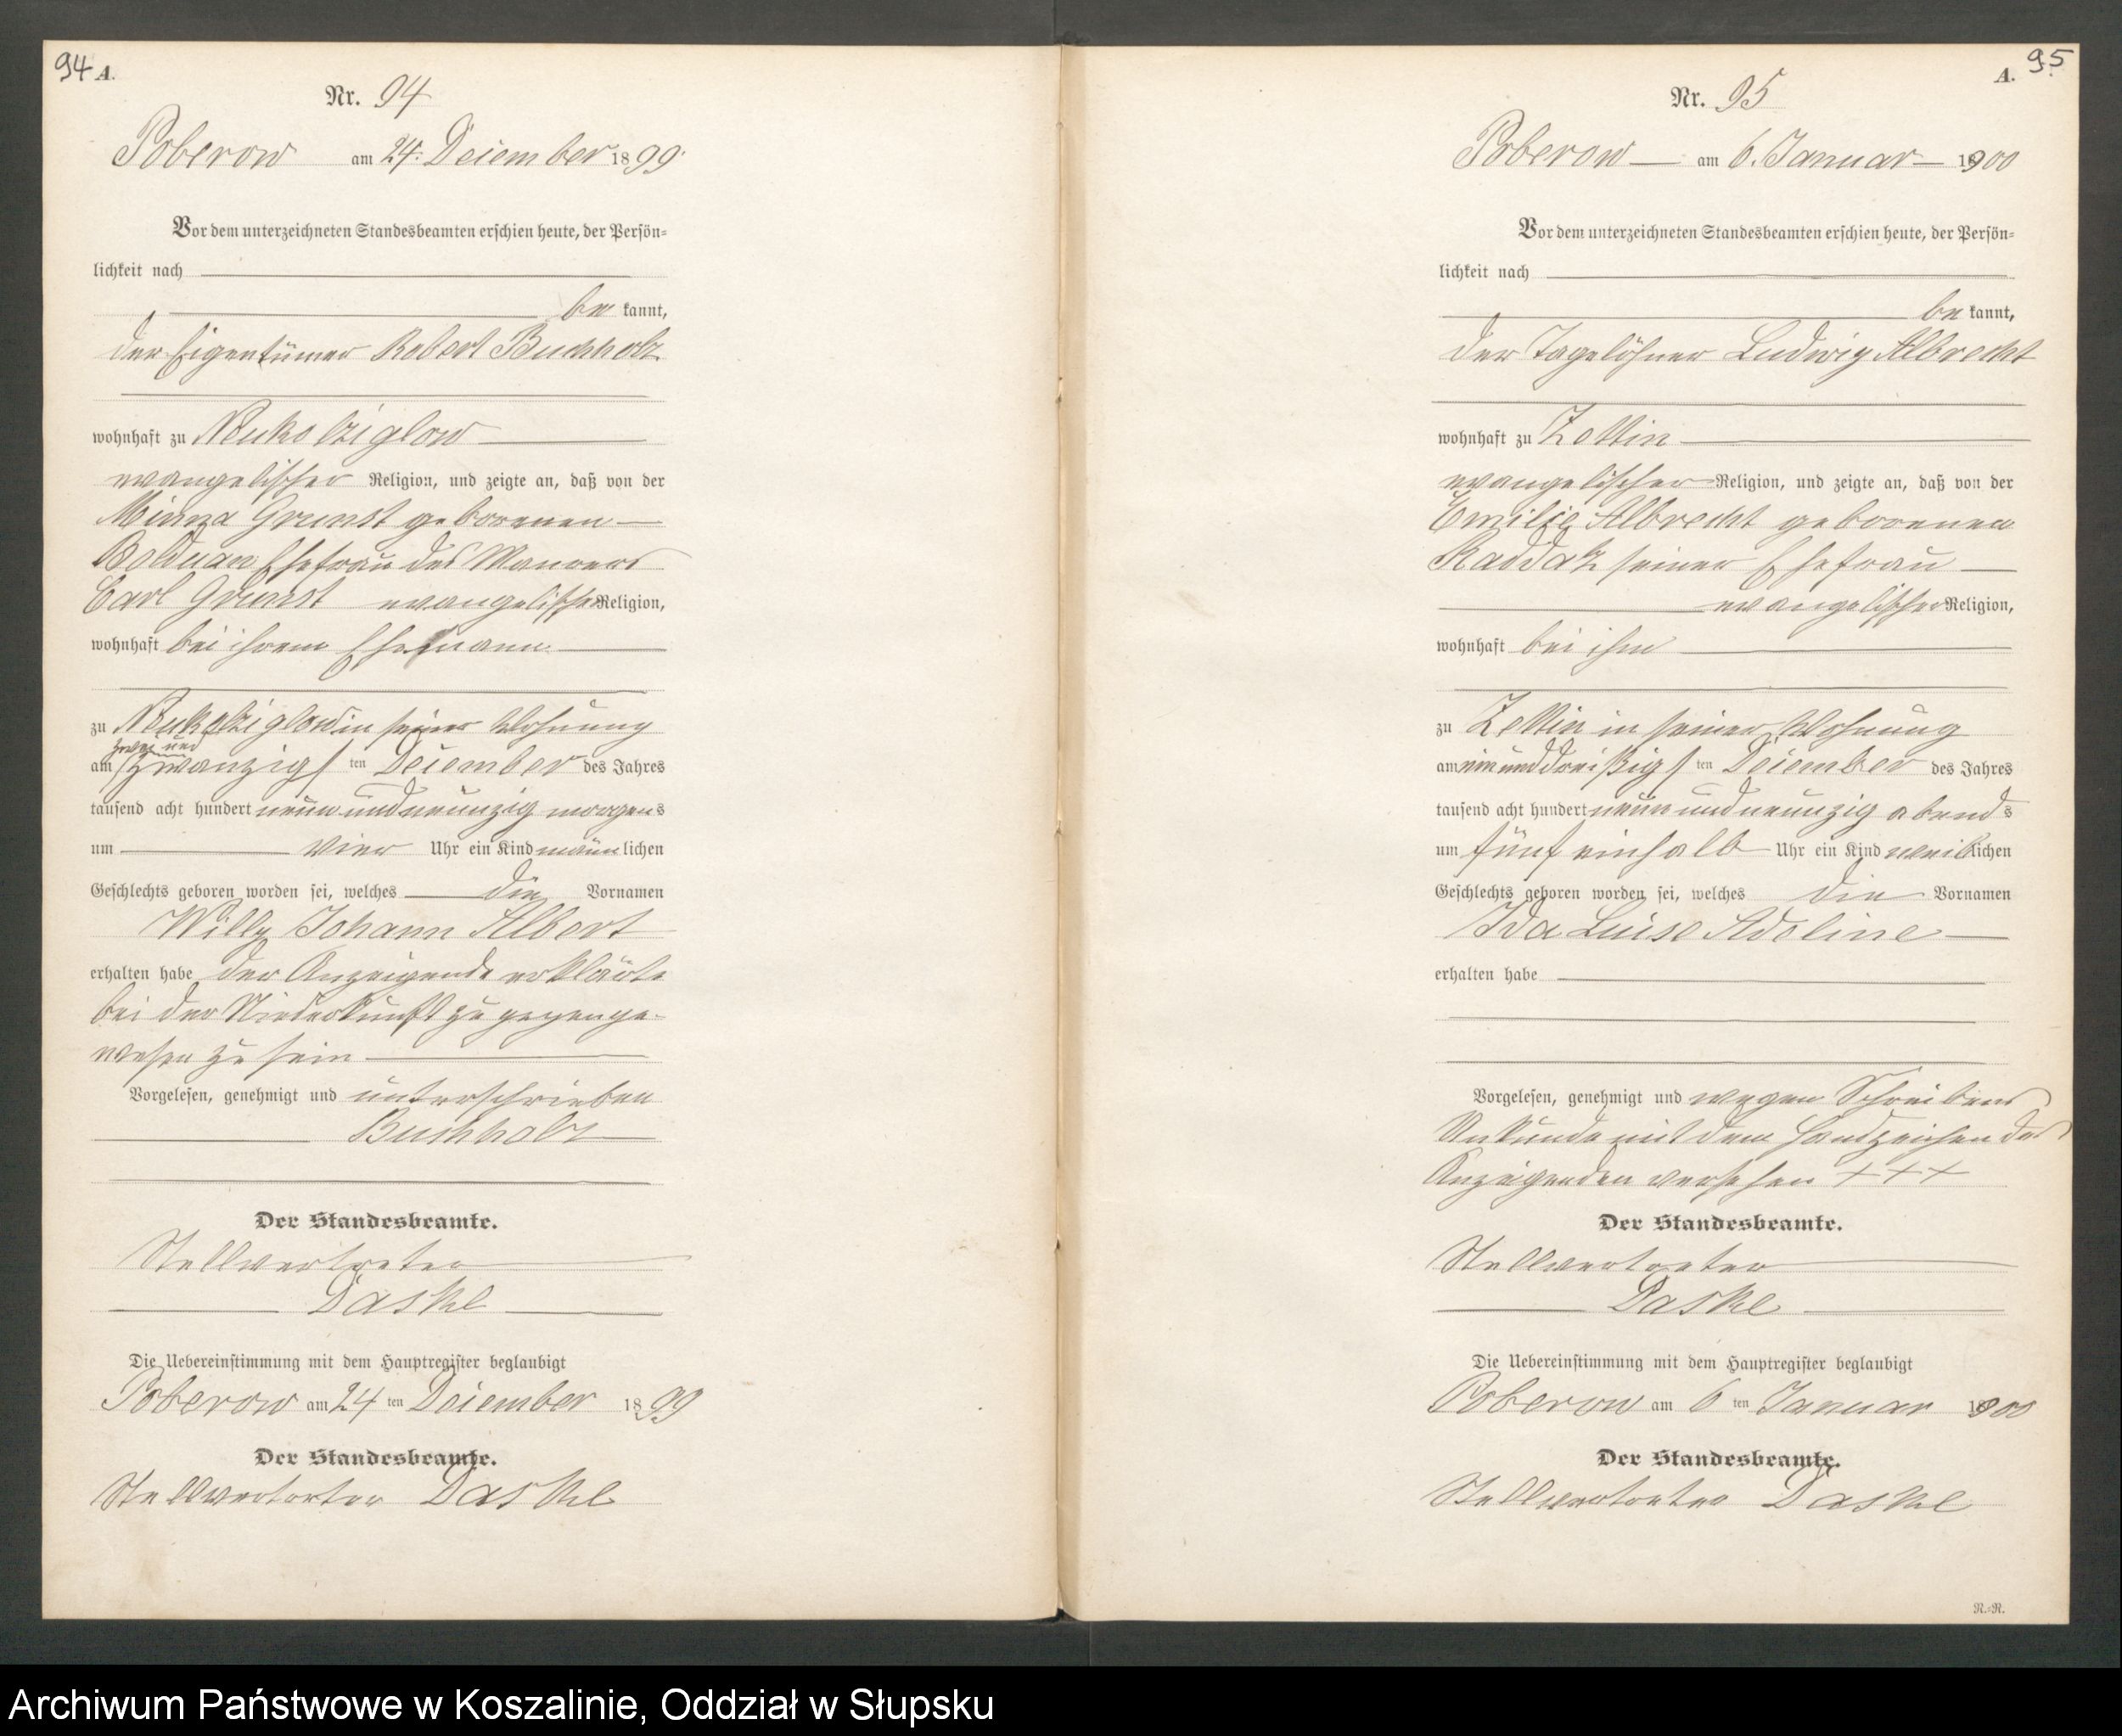 94 A.
Nr. 94
Poberow am 24. Dezember 1899.
Vor dem unterzeichneten Standesbeamten erschien heute, der Persön-
lichkeit nach
be kannt,
der Eigentümer Robert Buchholz
wohnhaft zu Neukolziglow
evangelischer Religion, und zeigte an, daß von der
Minna Grunst geborenen
Bolduan Ehefrau des Maurers
Carl Grunst evangelischer Religion,
wohnhaft bei ihrem Ehemann
zu Neukolziglow in seiner Wohnung
zwei und
am zwanzigsten Dezember des Jahres
tausend acht hundert neun und neunzig morgens
um vier Uhr ein Kind männlichen
Geschlechts geboren worden sei, welches die Vornamen
Willy Johann Albert
erhalten habe der Anzeigende erklärte
bei der Niederkunft zugegen ge-
wesen zu sein
Vorgelesen, genehmigt und unterschrieben
Buchholz
Der Standesbeamte.
Stellvertreter
Daske
Die Uebereinstimmung mit dem Hauptregister beglaubigt
Poberow am 24 ten Dezember 1899
Der Standesbeamte.
Stellvertreter Daske
A. 95.
Nr. 95
Poberow am 6. Januar 1900
Vor dem unterzeichneten Standesbeamten erschien heute, der Persön-
lichkeit nach
be kannt,
der Tagelöhner Ludwig Albrecht
wohnhaft zu Zettin
evangelischer Religion, und zeigte an, daß von der
Emilie Albrecht geborenen
Raddatz seiner Ehefrau
evangelischer Religion,
wohnhaft bei ihm
zu Zettin in seiner Wohnung
am ein und dreißigsten Dezember des Jahres
tausend acht hundert neun und neunzig abends
um fünf einhalb Uhr ein Kind weiblichen
Geschlechts geboren worden sei, welches die Vornamen
Ida Luise Adeline
erhalten habe
Vorgelesen, genehmigt und wegen Schreibens
Unkunde mit dem Handzeichen des
Anzeigenden versehen +++
Der Standesbeamte.
Stellvertreter
Daske
Die Uebereinstimmung mit dem Hauptregister beglaubigt
Poberow am 6 ten Januar 1900
Der Standesbeamte.
Stellvertreter Daske
R.=R.
Archiwum Państwowe w Koszalinie, Oddział w Słupsku